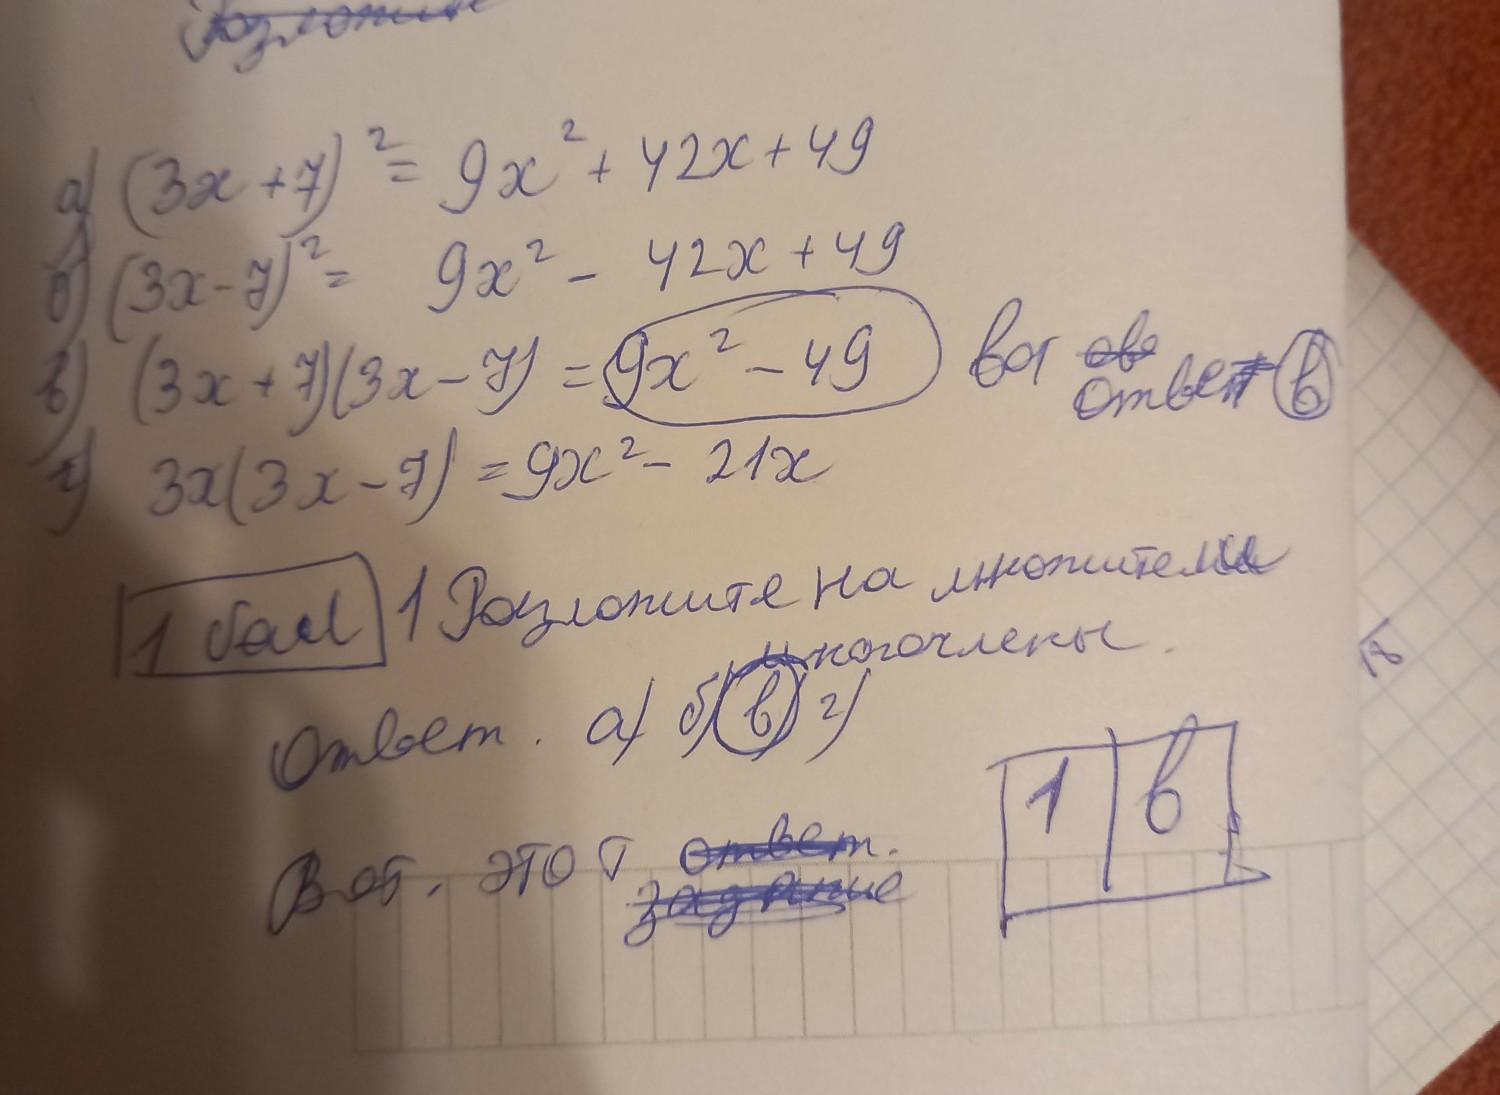 Разложите
а) (3x+7)² = 9x² + 42x + 49
б) (3x-7)² = 9x² - 42x + 49
в) (3x+7)(3x-7) = 9x² - 49 вот отве
ответ в
г) 3x(3x-7) = 9x² - 21x
1 балл 1 Разложите на множители
многочлены.
Ответ. а) б) в) г)
1 в
Вот. этот ответ.
задание